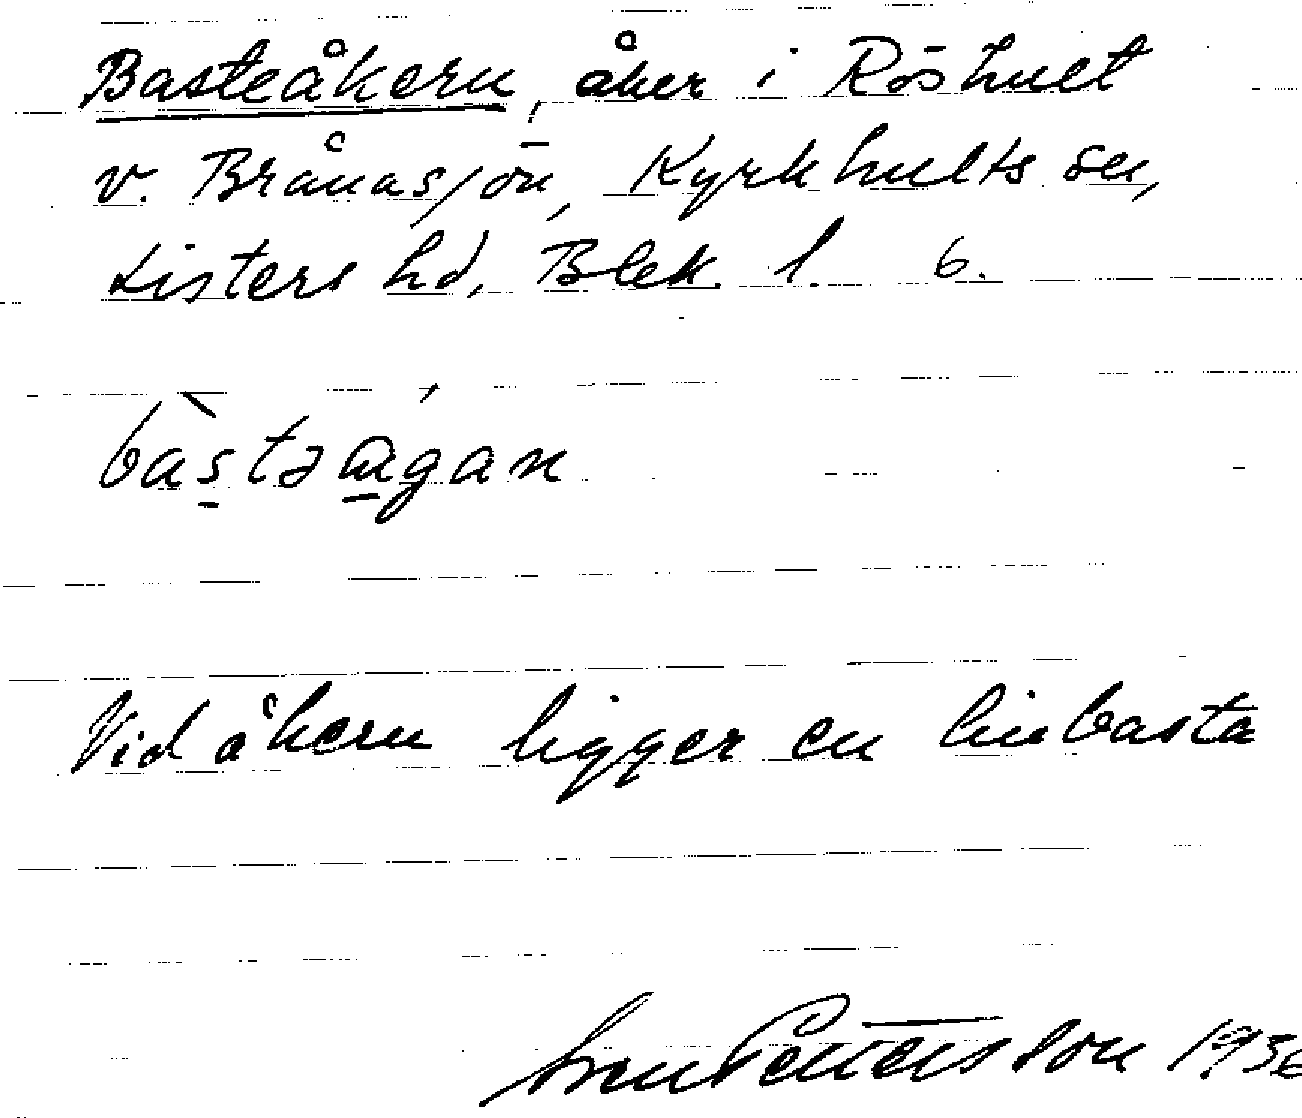 Basteåkern, åker i Röshult
v. Brånasjön, Kyrkhults sn,
Listers hd, Blek. l. 6.
bàstəågan
Vid åkern ligger en linbasta
Sven Pettersson 1936